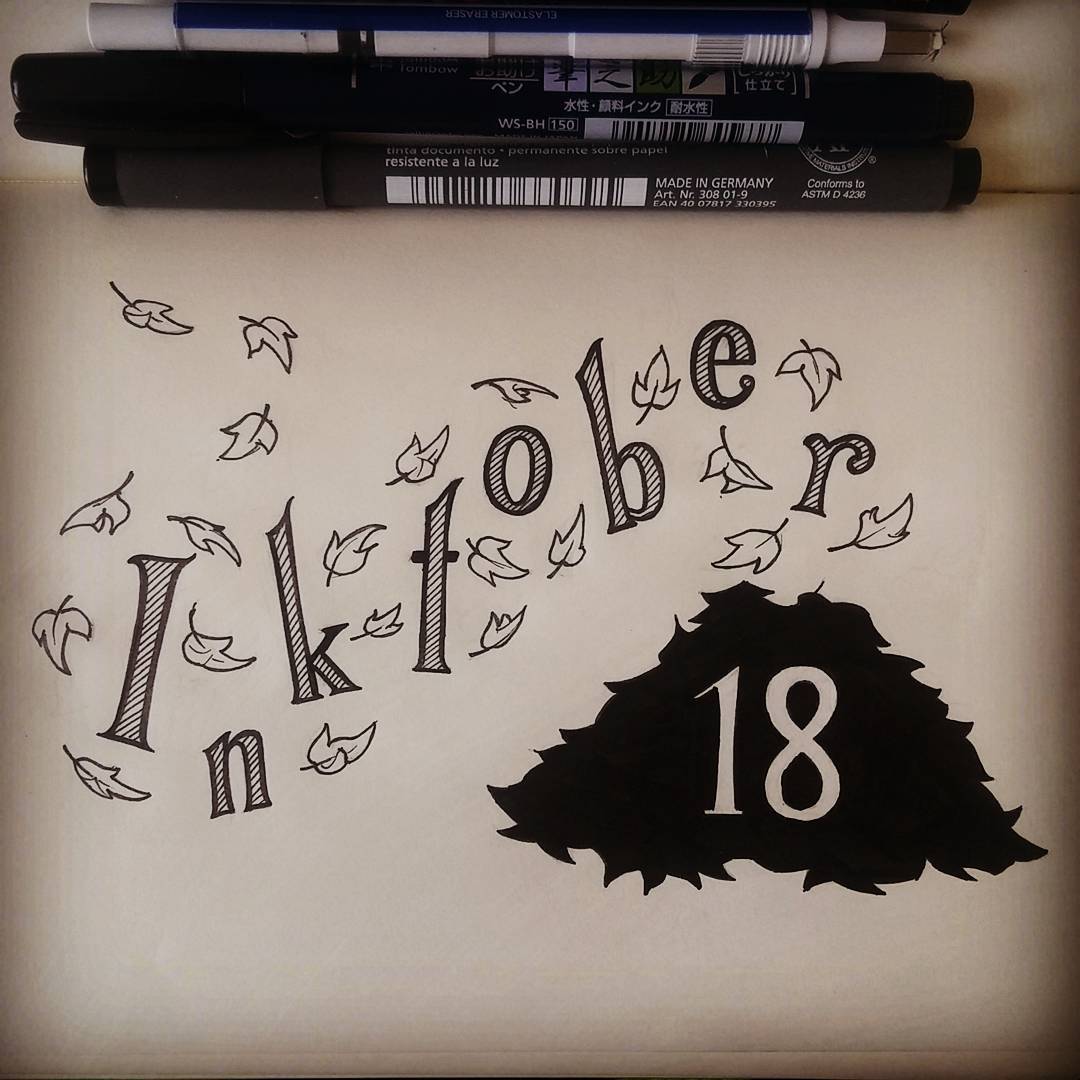 ELASTOMER ERASER
Tombow
ペン
筆之助
しっかり
仕立て
水性・顔料インク 耐水性
WS-BH 150
tinta documento • permanente sobre papel
resistente a la luz
MADE IN GERMANY
Art. Nr. 308 01-9
EAN 40 07817 330395
MATERIALS INSTITUTE
®
Conforms to
ASTM D 4236
Inktober
18